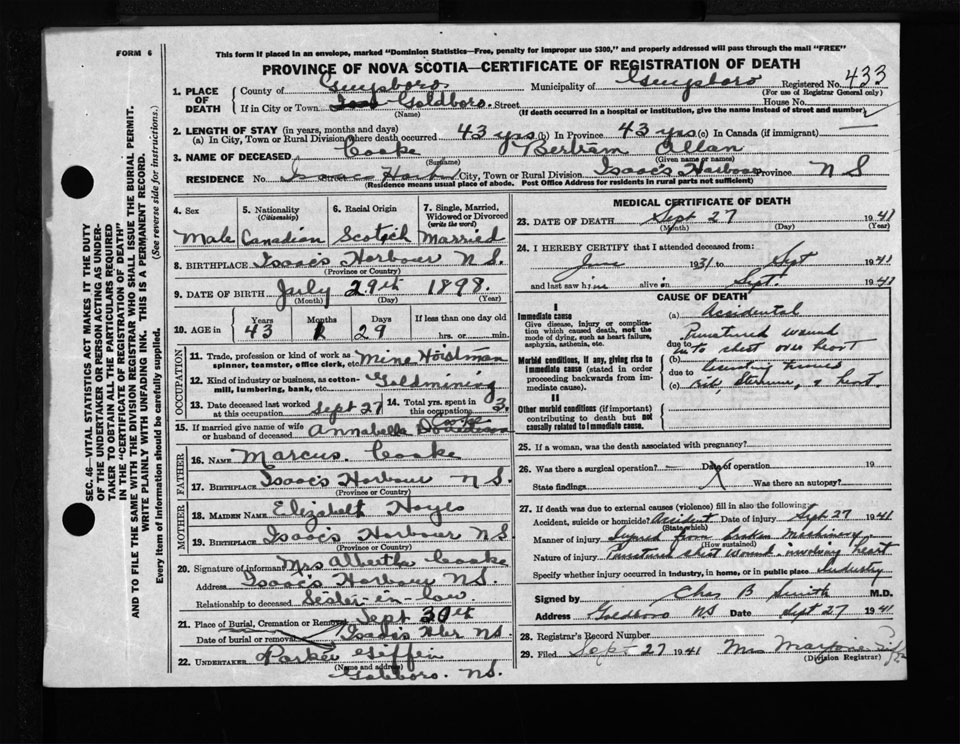 FORM 6
This form if placed in an envelope, marked "Dominion Statistics—Free, penalty for improper use $300," and properly addressed will pass through the mail "FREE"
PROVINCE OF NOVA SCOTIA—CERTIFICATE OF REGISTRATION OF DEATH
SEC. 46—VITAL STATISTICS ACT MAKES IT THE DUTY
OF THE UNDERTAKER OR PERSON ACTING AS UNDER-
TAKER TO OBTAIN ALL THE PARTICULARS REQUIRED
IN THE "CERTIFICATE OF REGISTRATION OF DEATH"
AND TO FILE THE SAME WITH THE DIVISION REGISTRAR WHO SHALL ISSUE THE BURIAL PERMIT.
WRITE PLAINLY WITH UNFADING INK. THIS IS A PERMANENT RECORD.
Every item of Information should be carefully supplied. (See reverse side for instructions.)
1. PLACE OF DEATH
County of Guysboro Municipality of Guysboro Registered No. 433
(For use of Registrar General only)
If in City or Town Goldboro. Street House No.
(Name) (If death occurred in a hospital or institution, give the name instead of street and number)
2. LENGTH OF STAY (in years, months and days)
(a) In City, Town or Rural Division where death occurred 43 yrs (b) In Province 43 yrs (c) In Canada (if immigrant) —
3. NAME OF DECEASED Cooke Bertram Allan
(Surname) (Given name or names)
RESIDENCE No. Isaacs Harbor City, Town or Rural Division Isaac's Harbour Province N S
(Residence means usual place of abode. Post Office Address for residents in rural parts not sufficient)
4. Sex Male
5. Nationality (Citizenship) Canadian
6. Racial Origin Scotch
7. Single, Married, Widowed or Divorced (Write the word) Married
8. BIRTHPLACE Isaac's Harbour N S.
(Province or Country)
9. DATE OF BIRTH July 29th 1898.
(Month) (Day) (Year)
10. AGE in Years Months Days If less than one day old
43 29 hrs. or min.
OCCUPATION
11. Trade, profession or kind of work as spinner, teamster, office clerk, etc. Mine Hoistman
12. Kind of industry or business, as cotton-mill, lumbering, bank, etc. Goldmining
13. Date deceased last worked at this occupation Sept 27
14. Total yrs. spent in this occupation 3.
15. If married give name of wife or husband of deceased Annabella
FATHER
16. Name Marcus Cooke
17. Birthplace Isaac's Harbour N S.
(Province or Country)
MOTHER
18. Maiden Name Elizabeth Hayes
19. Birthplace Isaac's Harbour NS
(Province or Country)
20. Signature of informant Mrs Albertha Cooke
Address Isaac's Harbour N.S.
Relationship to deceased Sister-in-law.
21. Place of Burial, Cremation or Removal
Date of burial or removal Sept 30th
Isaac's Hbr NS.
22. UNDERTAKER Parker Giffin
(Name and address)
Goldboro. NS.
MEDICAL CERTIFICATE OF DEATH
23. DATE OF DEATH Sept 27 1941
(Month) (Day) (Year)
24. I HEREBY CERTIFY that I attended deceased from:
June 1931 to Sept 1941
and last saw him alive on Sept. 1941
CAUSE OF DEATH
I
Immediate cause
Give disease, injury or complication which caused death, not the mode of dying, such as heart failure, asphyxia, asthenia, etc.
(a) Accidental
Punctured wound
due to into chest over heart
Morbid conditions, if any, giving rise to immediate cause (stated in order proceeding backwards from immediate cause).
(b)
due to
(c) Rib, Sternum, & heart.
II
Other morbid conditions (if important) contributing to death but not causally related to immediate cause.
25. If a woman, was the death associated with pregnancy?
26. Was there a surgical operation? — Date of operation 19
State findings Was there an autopsy?
27. If death was due to external causes (violence) fill in also the following:
Accident, suicide or homicide? Accident Date of injury Sept 27 1941
(State which)
Manner of injury from broken Machinery
(How sustained)
Nature of injury Punctured chest wound - involving heart
Specify whether injury occurred in industry, in home, or in public place Industry
Signed by Chas B Smith M.D.
Address Goldboro NS Date Sept 27 1941
28. Registrar's Record Number
29. Filed Sept 27 1941 Mrs
(Division Registrar)